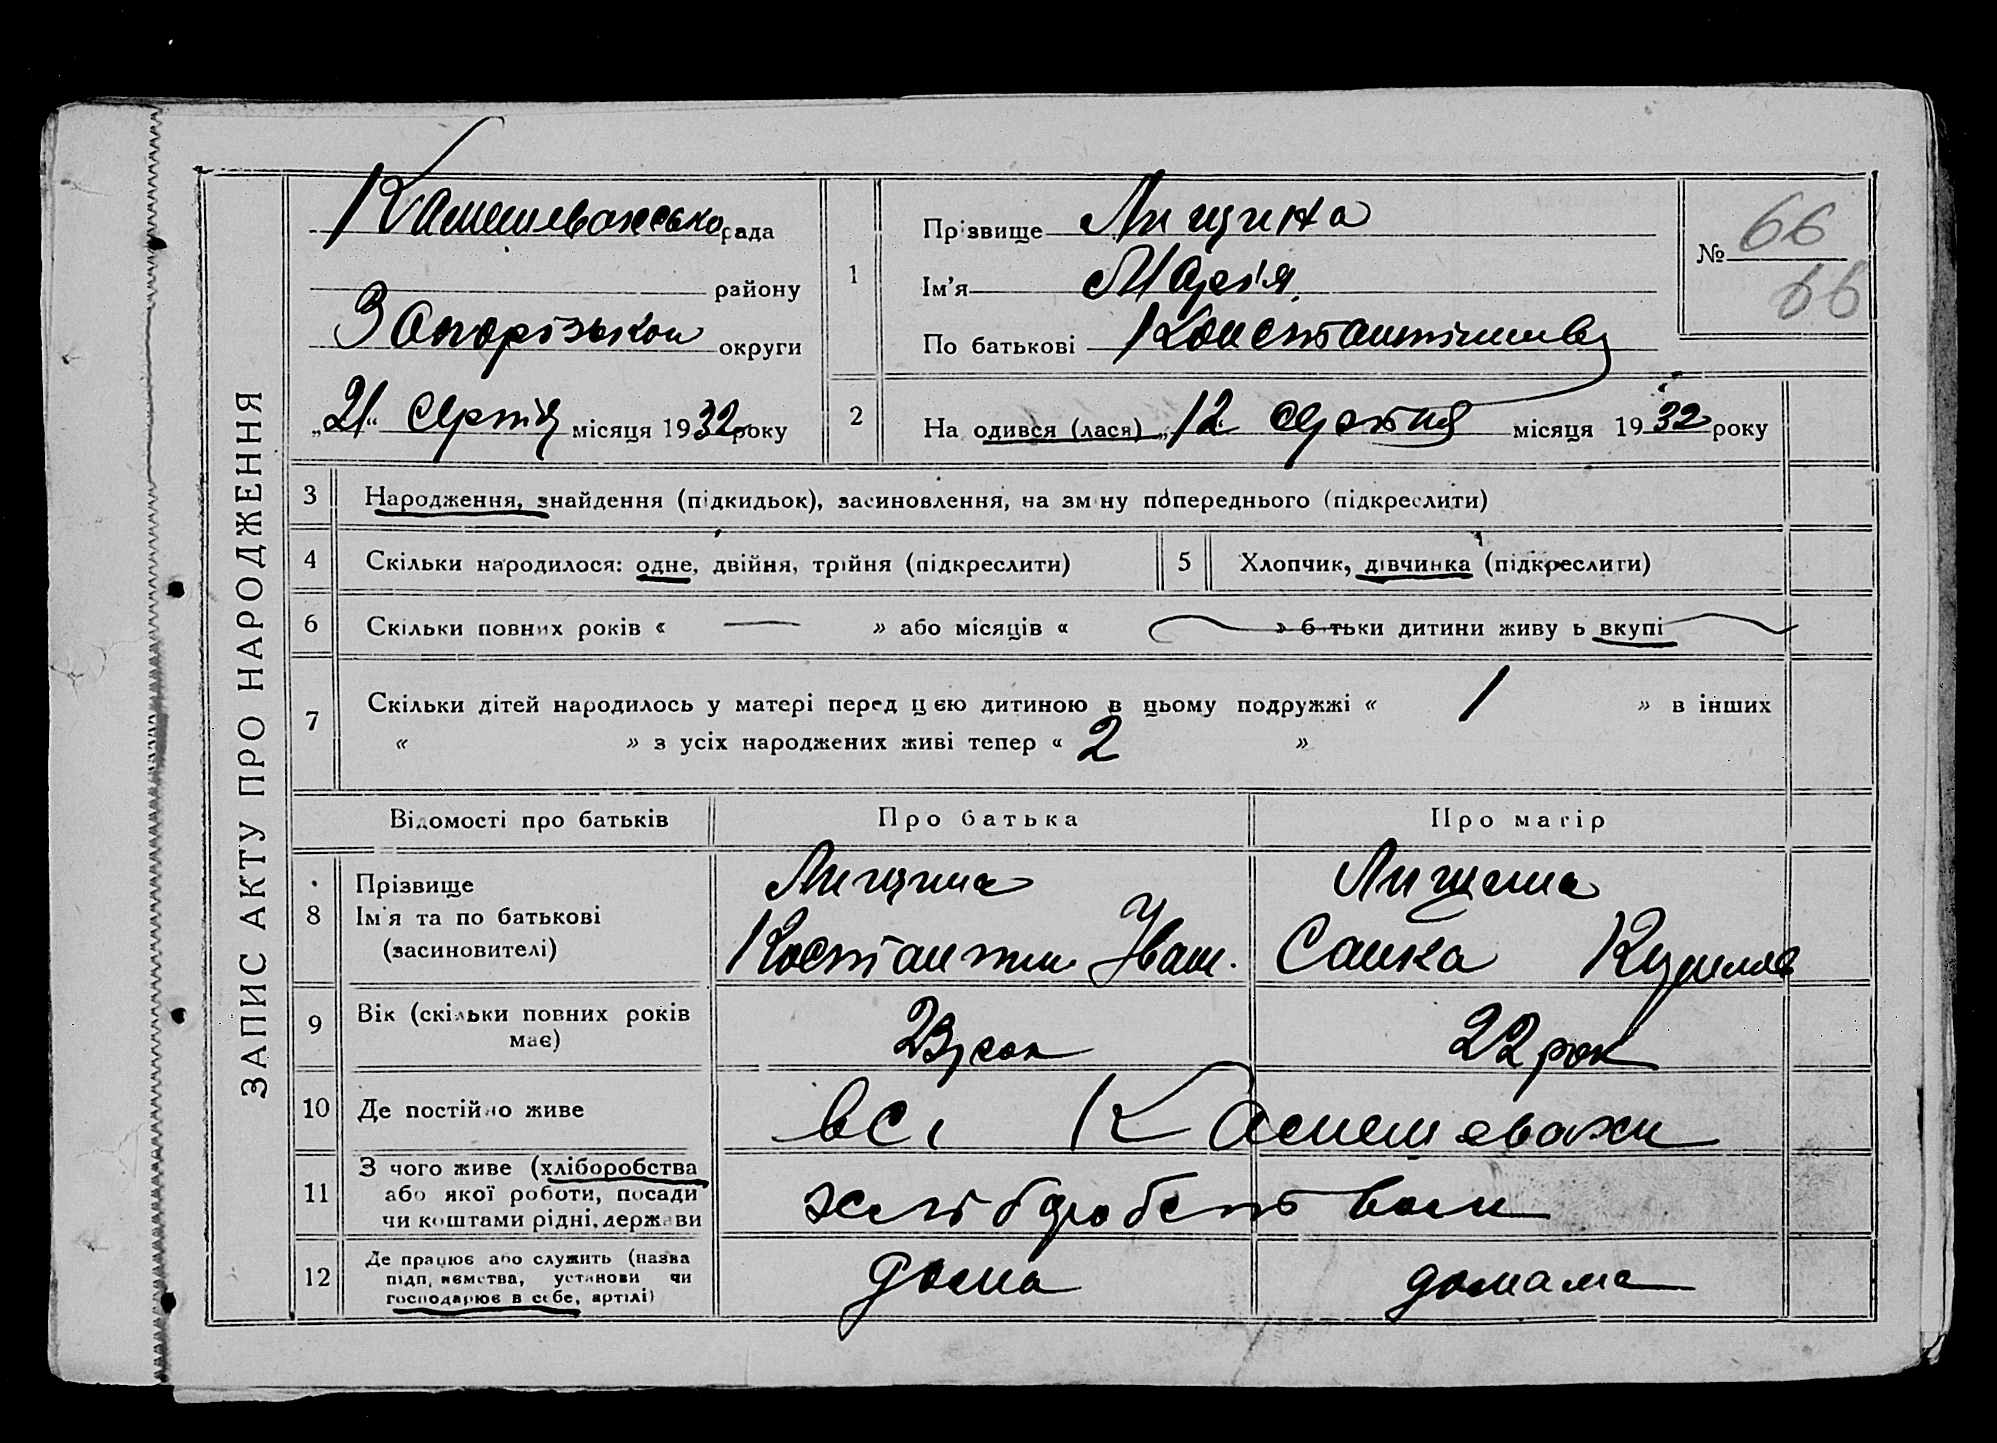 ЗАПИС АКТУ ПРО НАРОДЖЕННЯ
рада
району
Запорізької округи
„21“ Серпня місяця 1932 року
1 Прізвище Лищина
Ім'я Марія
По батькові
№ 66
66
2 На одився (лася) „12 Серпня місяця 1932 року
3 Народження, знайдення (підкидьок), засиновлення, на зміну попереднього (підкреслити)
4 Скільки народилося: одне, двійня, трійня (підкреслити)
5 Хлопчик, дівчинка (підкреслити)
6 Скільки повних років « — » або місяців « » б тьки дитини живу ь вкупі
7 Скільки дітей народилось у матері перед цією дитиною в цьому подружжі « 1 » в інших
« » з усіх народжених живі тепер « 2 »
Відомості про батьків Про батька Про матір
8 Прізвище Лищина Лищина
Ім'я та по батькові Костантин Іван.
(засиновителі)
9 Вік (скільки повних років має) 23 рок 22 рок
10 Де постійно живе всі Камешевахи
11 З чого живе (хліборобства
або якої роботи, посади
чи коштами рідні, держави
12 Де працює або служить (назва
підприємства, установи чи
господарює в себе, артілі) дома